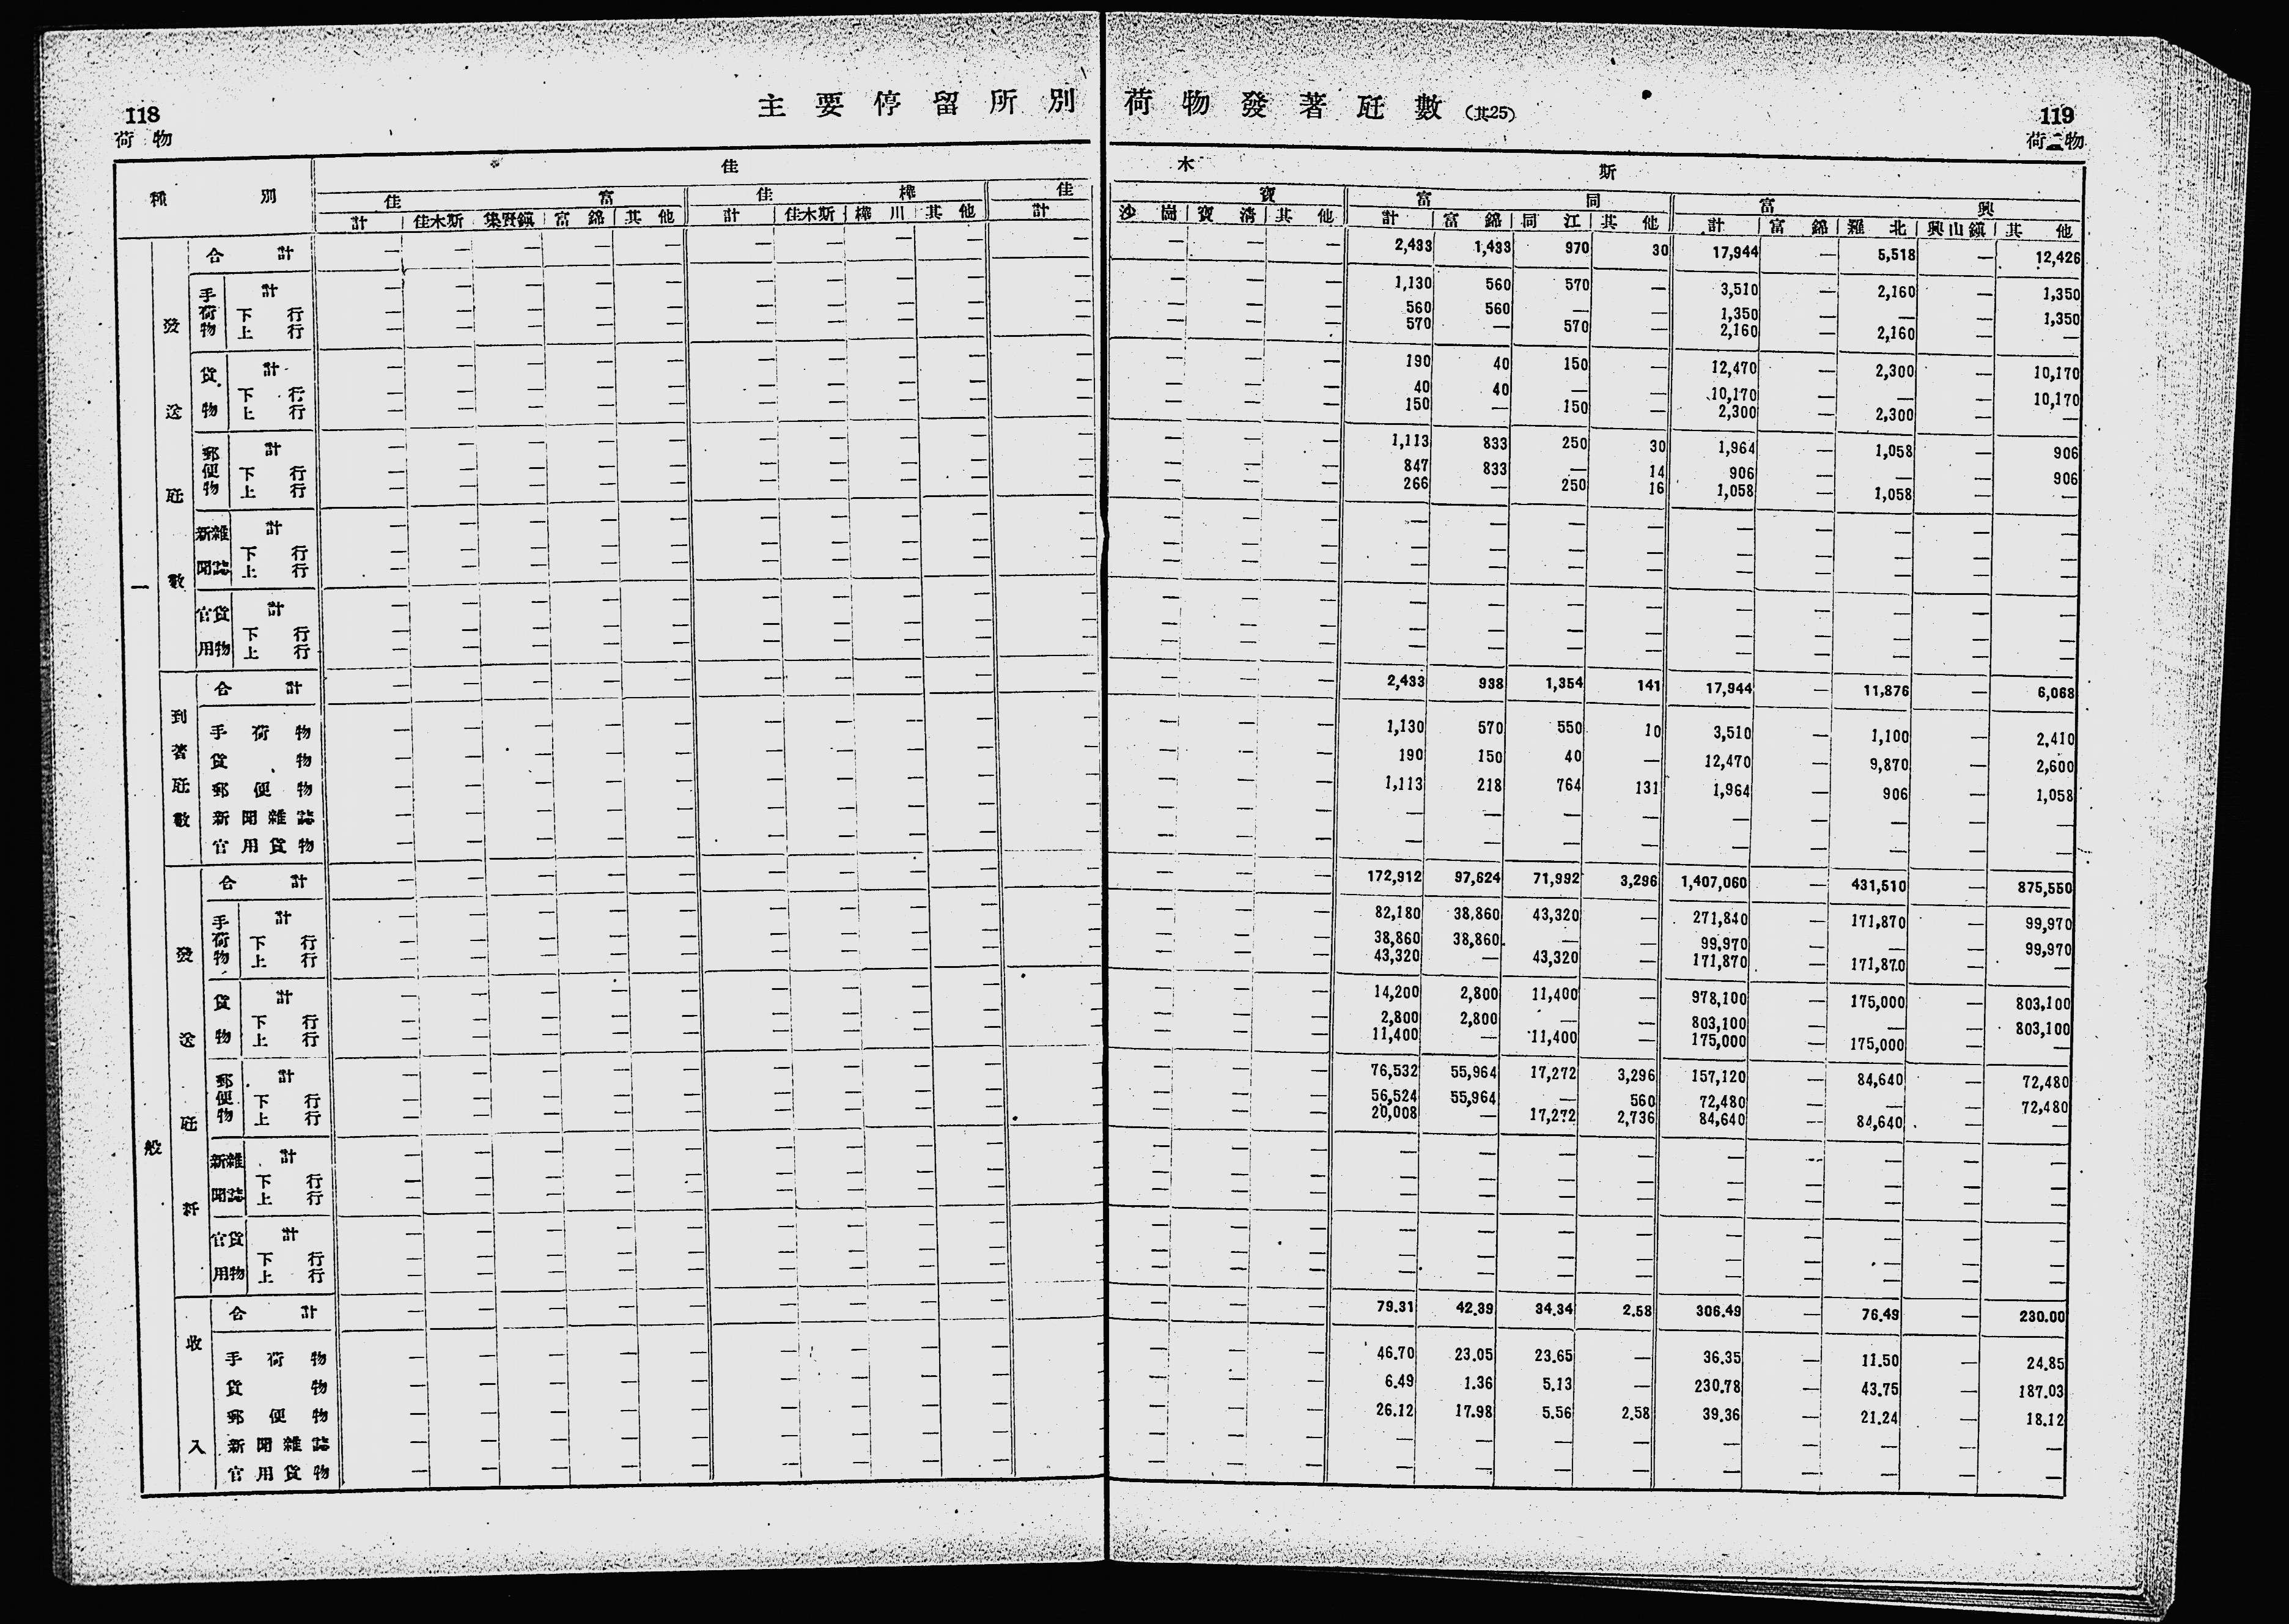 118
荷 物
主 要 停 留 所 別 荷 物 發 著 瓩 數 (其25)
119
荷 物
種 別 佳 木 斯
佳 富 佳 樺 佳 寶 富 同 富 興
計 佳木斯 集賢鎭 富 錦 其 他 計 佳木斯 樺 川 其 他 計 沙 崗 寶 清 其 他 計 富 錦 同 江 其 他 計 富 錦 羅 北 興山鎭 其 他
一 般
發 送 瓩 數
合 計 — — — — — — — — — — — — — 2,433 1,433 970 30 17,944 — 5,518 — 12,426
手荷物 計 — — — — — — — — — — — — — 1,130 560 570 — 3,510 — 2,160 — 1,350
下 行 — — — — — — — — — — — — — 560 560 — — 1,350 — — — 1,350
上 行 — — — — — — — — — — — — — 570 — 570 — 2,160 — 2,160 — —
貨物 計 — — — — — — — — — — — — — 190 40 150 — 12,470 — 2,300 — 10,170
下 行 — — — — — — — — — — — — — 40 40 — — 10,170 — — — 10,170
上 行 — — — — — — — — — — — — — 150 — 150 — 2,300 — 2,300 — —
郵便物 計 — — — — — — — — — — — — — 1,113 833 250 30 1,964 — 1,058 — 906
下 行 — — — — — — — — — — — — — 847 833 — 14 906 — — — 906
上 行 — — — — — — — — — — — — — 266 — 250 16 1,058 — 1,058 — —
新聞雜誌 計 — — — — — — — — — — — — — — — — — — — — — —
下 行 — — — — — — — — — — — — — — — — — — — — — —
上 行 — — — — — — — — — — — — — — — — — — — — — —
官用貨物 計 — — — — — — — — — — — — — — — — — — — — — —
下 行 — — — — — — — — — — — — — — — — — — — — — —
上 行 — — — — — — — — — — — — — — — — — — — — — —
到 著 瓩 數
合 計 — — — — — — — — — — — — — 2,433 938 1,354 141 17,944 — 11,876 — 6,068
手 荷 物 — — — — — — — — — — — — — 1,130 570 550 10 3,510 — 1,100 — 2,410
貨 物 — — — — — — — — — — — — — 190 150 40 — 12,470 — 9,870 — 2,600
郵 便 物 — — — — — — — — — — — — — 1,113 218 764 131 1,964 — 906 — 1,058
新 聞 雜 誌 — — — — — — — — — — — — — — — — — — — — — —
官 用 貨 物 — — — — — — — — — — — — — — — — — — — — — —
發 送 瓩 粁
合 計 — — — — — — — — — — — — — 172,912 97,624 71,992 3,296 1,407,060 — 431,510 — 875,550
手荷物 計 — — — — — — — — — — — — — 82,180 38,860 43,320 — 271,840 — 171,870 — 99,970
下 行 — — — — — — — — — — — — — 38,860 38,860 — — 99,970 — — — 99,970
上 行 — — — — — — — — — — — — — 43,320 — 43,320 — 171,870 — 171,870 — —
貨物 計 — — — — — — — — — — — — — 14,200 2,800 11,400 — 978,100 — 175,000 — 803,100
下 行 — — — — — — — — — — — — — 2,800 2,800 — — 803,100 — — — 803,100
上 行 — — — — — — — — — — — — — 11,400 — 11,400 — 175,000 — 175,000 — —
郵便物 計 — — — — — — — — — — — — — 76,532 55,964 17,272 3,296 157,120 — 84,640 — 72,480
下 行 — — — — — — — — — — — — — 56,524 55,964 — 560 72,480 — — — 72,480
上 行 — — — — — — — — — — — — — 20,008 — 17,272 2,736 84,640 — 84,640 — —
新聞雜誌 計 — — — — — — — — — — — — — — — — — — — — — —
下 行 — — — — — — — — — — — — — — — — — — — — — —
上 行 — — — — — — — — — — — — — — — — — — — — — —
官用貨物 計 — — — — — — — — — — — — — — — — — — — — — —
下 行 — — — — — — — — — — — — — — — — — — — — — —
上 行 — — — — — — — — — — — — — — — — — — — — — —
收 入
合 計 — — — — — — — — — — — — — 79.31 42.39 34.34 2.58 306.49 — 76.49 — 230.00
手 荷 物 — — — — — — — — — — — — — 46.70 23.05 23.65 — 36.35 — 11.50 — 24.85
貨 物 — — — — — — — — — — — — — 6.49 1.36 5.13 — 230.78 — 43.75 — 187.03
郵 便 物 — — — — — — — — — — — — — 26.12 17.98 5.56 2.58 39.36 — 21.24 — 18.12
新 聞 雜 誌 — — — — — — — — — — — — — — — — — — — — — —
官 用 貨 物 — — — — — — — — — — — — — — — — — — — — — —